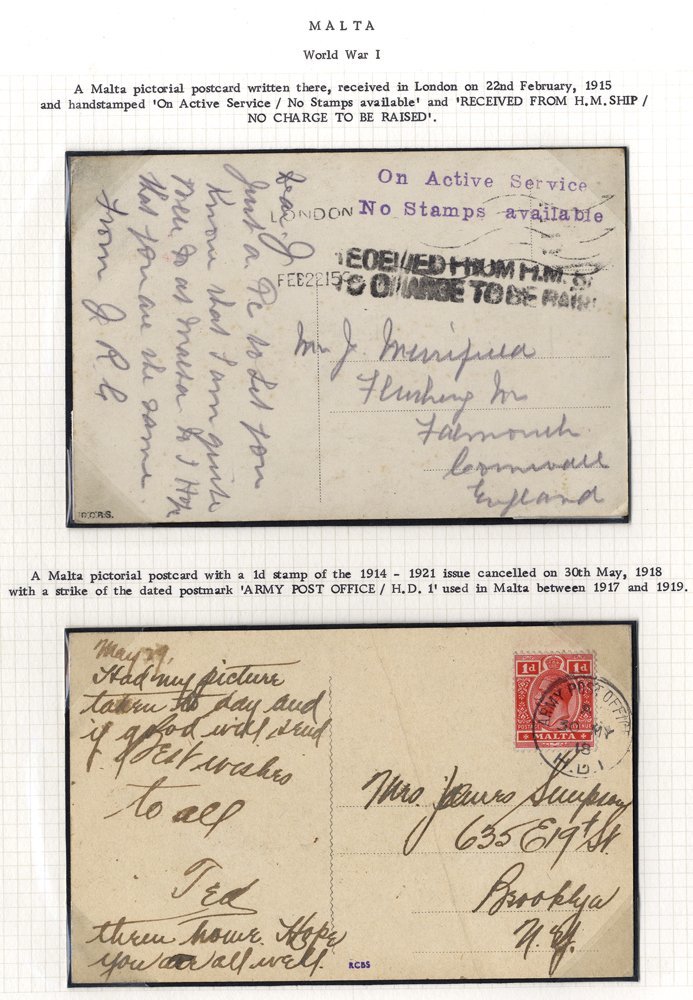 MALTA
World War I
A Malta pictorial postcard written there, received in London on 22nd February, 1915
and handstamped 'On Active Service / No Stamps available' and 'RECEIVED FROM H.M.SHIP /
NO CHARGE TO BE RAISED'.
On Active Service
No Stamps available
LONDON
FEB 22 15
ECEIVED FROM H.M. S
O CHARGE TO BE RAIS
Dear J
Just a Pc to Let you
Know that I am quite
well at Malta & I Hope
that you are the same
From J R G
J. Merrifield
Flushing
Falmouth
Cornwall
England
R.C.B.S.
A Malta pictorial postcard with a 1d stamp of the 1914 - 1921 issue cancelled on 30th May, 1918
with a strike of the dated postmark 'ARMY POST OFFICE / H.D. 1' used in Malta between 1917 and 1919.
May 29,
Had my picture
taken to day and
if good will send
Best wishes
to all
Ted
them home. Hope
you are all well.
1d 1d
POSTAGE
MALTA
ARMY POST OFFICE
30 MY
18
H.D.1
Mrs. James Simpson
635 E 19th St.
Brooklyn
N.Y.
RCBS